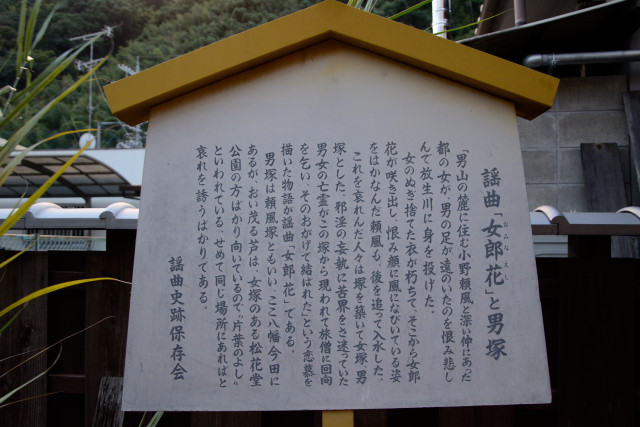 謡曲「女郎花」と男塚
おみなえし
「男山の麓に住む小野頼風と深い仲にあった
都の女が、男の足が遠のいたのを恨み悲し
んで放生川に身を投げた。
女のぬぎ捨てた衣が朽ちて、そこから女郎
花が咲き出し、恨み顔に風になびいている姿
をはかなんだ頼風も、後を追って入水した。
これを哀れんだ人々は塚を築いて女塚、男
塚とした。邪淫の妄執に苦界をさ迷っていた
男女の亡霊がこの塚から現われて旅僧に回向
を乞い、そのおかげて結ばれた」という恋慕を
描いた物語が謡曲「女郎花」である。
男塚は頼風塚ともいい、ここ八幡今田に
あるが、おい茂る芦は、女塚のある松花堂
公園の方ばかり向いているので“片葉のよし”
といわれている。せめて同じ場所にあればと
哀れを誘うばかりである。
謡曲史跡保存会